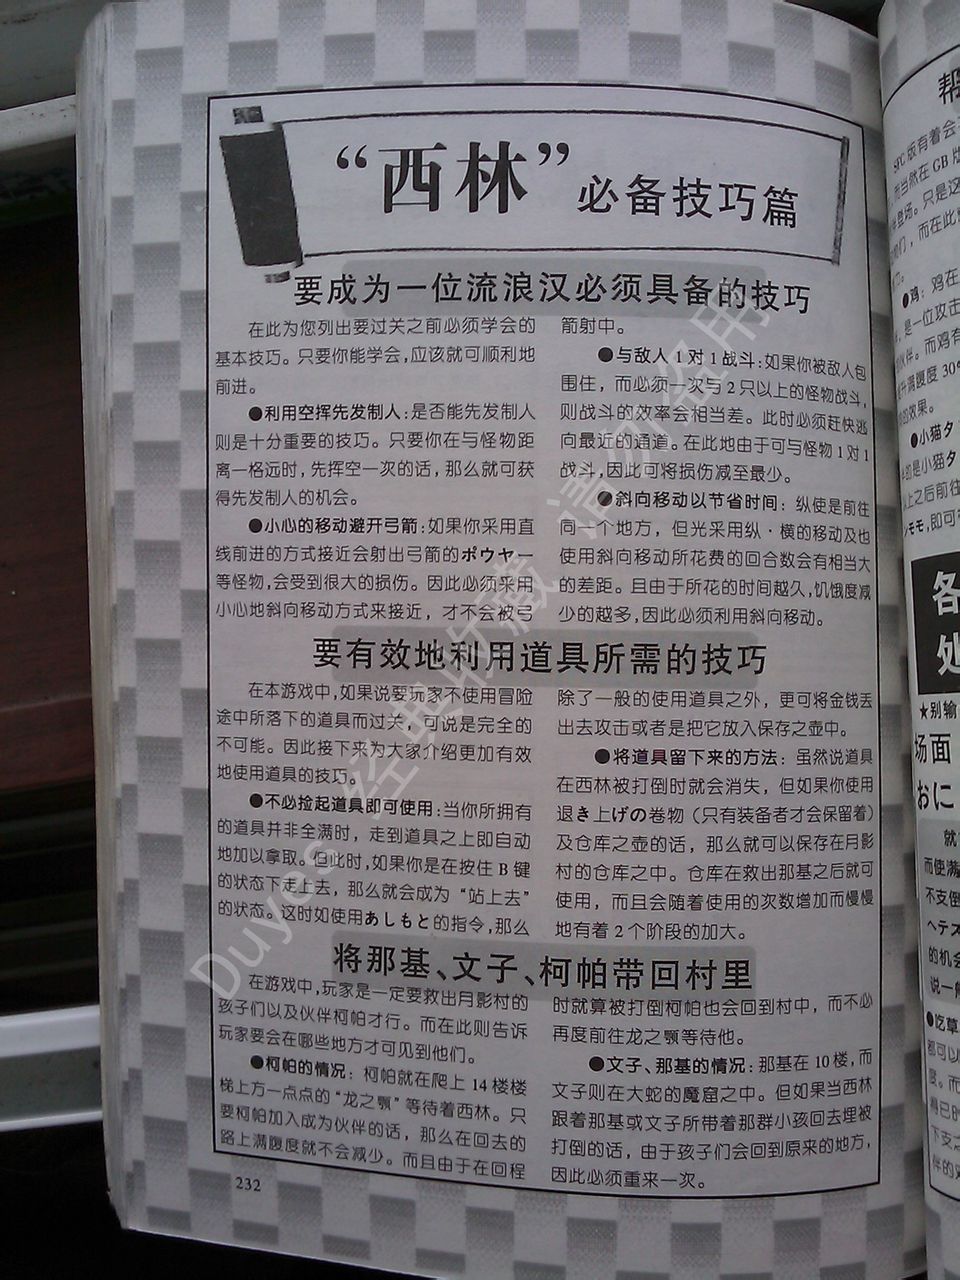 “西林”必备技巧篇
要成为一位流浪汉必须具备的技巧
在此为您列出要过关之前必须学会的
基本技巧。只要你能学会,应该就可顺利地
前进。
●利用空挥先发制人:是否能先发制人
则是十分重要的技巧。只要你在与怪物距
离一格远时,先挥空一次的话,那么就可获
得先发制人的机会。
●小心的移动避开弓箭:如果你采用直
线前进的方式接近会射出弓箭的ボウヤー
等怪物,会受到很大的损伤。因此必须采用
小心地斜向移动方式来接近,才不会被弓
箭射中。
●与敌人1对1战斗:如果你被敌人包
围住,而必须一次与2只以上的怪物战斗,
则战斗的效率会相当差。此时必须赶快逃
向最近的通道。在此地由于可与怪物1对1
战斗,因此可将损伤减至最少。
●斜向移动以节省时间:纵使是前往
同一个地方,但光采用纵·横的移动及也
使用斜向移动所花费的回合数会有相当大
的差距。且由于所花的时间越久,饥饿度减
少的越多,因此必须利用斜向移动。
要有效地利用道具所需的技巧
在本游戏中,如果说要玩家不使用冒险
途中所落下的道具而过关,可说是完全的
不可能。因此接下来为大家介绍更加有效
地使用道具的技巧。
●不必捡起道具即可使用:当你所拥有
的道具并非全满时,走到道具之上即自动
地加以拿取。但此时,如果你是在按住B键
的状态下走上去,那么就会成为“站上去”
的状态。这时如使用あしもと的指令,那么
除了一般的使用道具之外,更可将金钱丢
出去攻击或者是把它放入保存之壶中。
●将道具留下来的方法:虽然说道具
在西林被打倒时就会消失,但如果你使用
退き上げの卷物(只有装备者才会保留着)
及仓库之壶的话,那么就可以保存在月影
村的仓库之中。仓库在救出那基之后就可
使用,而且会随着使用的次数增加而慢慢
地有着2个阶段的加大。
将那基、文子、柯帕带回村里
在游戏中,玩家是一定要救出月影村的
孩子们以及伙伴柯帕才行。而在此则告诉
玩家要会在哪些地方才可见到他们。
●柯帕的情况:柯帕就在爬上14楼楼
梯上方一点点的“龙之颚”等待着西林。只
要柯帕加入成为伙伴的话,那么在回去的
路上满腹度就不会减少。而且由于在回程
时就算被打倒柯帕也会回到村中,而不必
再度前往龙之颚等待他。
●文子、那基的情况:那基在10楼,而
文子则在大蛇的魔窟之中。但如果当西林
跟着那基或文子所带着那群小孩回去埋被
打倒的话,由于孩子们会回到原来的地方,
因此必须重来一次。
232
Duyes 经典收藏 请勿盗用
帮
SFC版有着会
而当然在GB版
登场。只是这
们,而在此
●鸡:鸡在
是一位攻击
伙伴。而鸡有
升满腹度30%
的效果。
●小猫タ
的是小猫タ
以上之后前往
ンモモ,即可
各
处
★别输
场面
おに
就
而使满
不支倒
ヘテス
的机会
说一般
●吃草
都可以
度。而
下支
伴的